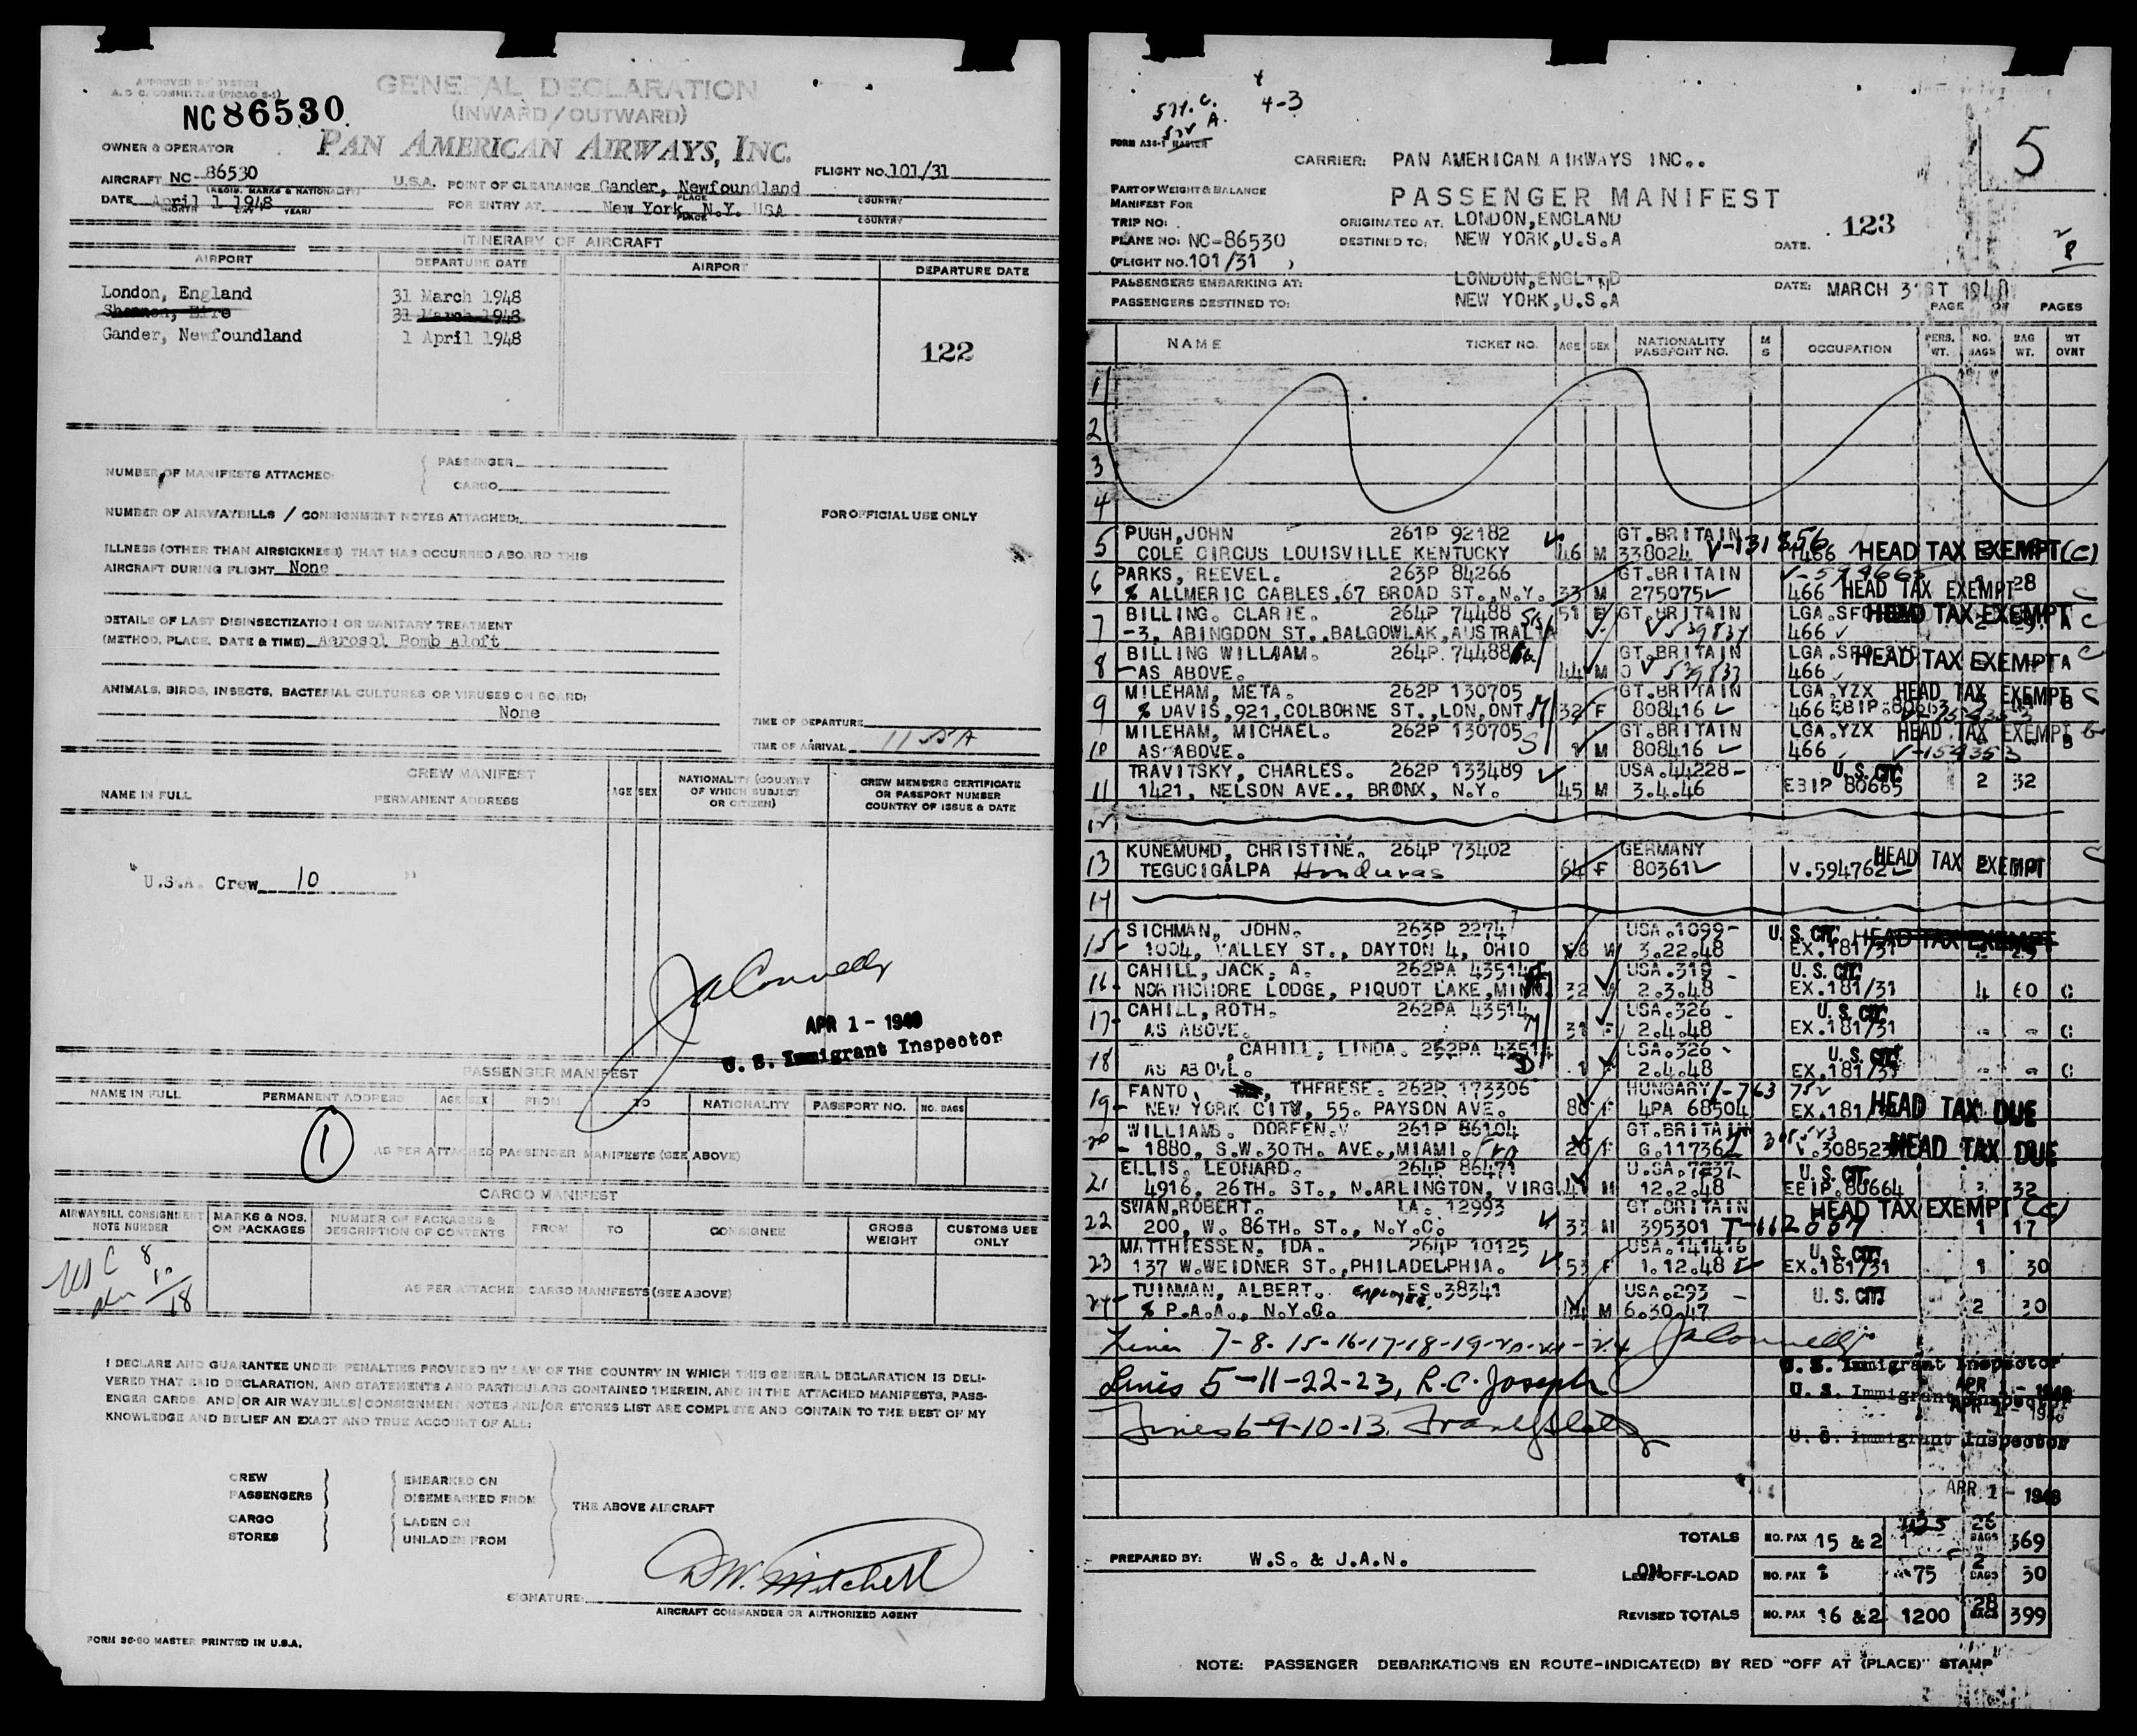 APPROVED BY SYSTEM
A. O C. COMMITTEE (PICAO S-1)
GENERAL DECLARATION
(INWARD/OUTWARD)
NC86530
PAN AMERICAN AIRWAYS, INC.
OWNER & OPERATOR
AIRCRAFT NC-86530 U.S.A. POINT OF CLEARANCE Gander, Newfoundland FLIGHT NO. 101/31
(REGIS. MARKS & NATIONALITY) PLACE COUNTRY
DATE April 1 1948 FOR ENTRY AT New York, N.Y. USA
MONTH DAY YEAR) PLACE COUNTRY
ITINERARY OF AIRCRAFT
AIRPORT DEPARTURE DATE AIRPORT DEPARTURE DATE
London, England 31 March 1948
Shannon, Eire 31 March 1948
Gander, Newfoundland 1 April 1948
122
NUMBER OF MANIFESTS ATTACHED: PASSENGER
CARGO
NUMBER OF AIRWAYBILLS / CONSIGNMENT NOTES ATTACHED:
FOR OFFICIAL USE ONLY
ILLNESS (OTHER THAN AIRSICKNESS) THAT HAS OCCURRED ABOARD THIS
AIRCRAFT DURING FLIGHT None
DETAILS OF LAST DISINSECTIZATION OR SANITARY TREATMENT
(METHOD, PLACE, DATE & TIME) Aerosol Bomb Aloft
ANIMALS, BIRDS, INSECTS, BACTERIAL CULTURES OR VIRUSES ON BOARD:
None
TIME OF DEPARTURE
TIME OF ARRIVAL 1155A
CREW MANIFEST
NAME IN FULL PERMANENT ADDRESS AGE SEX NATIONALITY (COUNTRY OF WHICH SUBJECT OR CITIZEN) CREW MEMBERS CERTIFICATE OR PASSPORT NUMBER COUNTRY OF ISSUE & DATE
"U.S.A. Crew 10 "
JA Connelly
APR 1 - 1948
U. S. Immigrant Inspector
PASSENGER MANIFEST
NAME IN FULL PERMANENT ADDRESS AGE SEX FROM TO NATIONALITY PASSPORT NO. NO. BAGS
1
AS PER ATTACHED PASSENGER MANIFESTS (SEE ABOVE)
CARGO MANIFEST
AIRWAYBILL CONSIGNMENT NOTE NUMBER MARKS & NOS. ON PACKAGES NUMBER OF PACKAGES & DESCRIPTION OF CONTENTS FROM TO CONSIGNEE GROSS WEIGHT CUSTOMS USE ONLY
US C 8
10
18
AS PER ATTACHED CARGO MANIFESTS (SEE ABOVE)
I DECLARE AND GUARANTEE UNDER PENALTIES PROVIDED BY LAW OF THE COUNTRY IN WHICH THIS GENERAL DECLARATION IS DELI-
VERED THAT SAID DECLARATION, AND STATEMENTS AND PARTICULARS CONTAINED THEREIN, AND IN THE ATTACHED MANIFESTS, PASS-
ENGER CARDS, AND/OR AIR WAYBILLS/CONSIGNMENT NOTES AND/OR STORES LIST ARE COMPLETE AND CONTAIN TO THE BEST OF MY
KNOWLEDGE AND BELIEF AN EXACT AND TRUE ACCOUNT OF ALL:
CREW EMBARKED ON
PASSENGERS DISEMBARKED FROM
THE ABOVE AIRCRAFT
CARGO LADEN ON
STORES UNLADEN FROM
DW. Mitchell
SIGNATURE:
AIRCRAFT COMMANDER OR AUTHORIZED AGENT
FORM 36-60 MASTER PRINTED IN U.S.A.
4-3
5
FORM A36-1 MASTER
CARRIER: PAN AMERICAN AIRWAYS INC..
PART OF WEIGHT & BALANCE
MANIFEST FOR
PASSENGER MANIFEST
TRIP NO: ORIGINATED AT. LONDON, ENGLAND 123
PLANE NO: NC-86530 DESTINED TO: NEW YORK, U.S.A DATE.
(FLIGHT NO. 101/31 )
PASSENGERS EMBARKING AT: LONDON, ENGLAND DATE: MARCH 31ST 1948
PASSENGERS DESTINED TO: NEW YORK, U.S.A PAGE OF PAGES
NAME TICKET NO. AGE SEX NATIONALITY PASSPORT NO. M S OCCUPATION PERS. WT. NO. BAGS BAG WT. WT OVNT
1
2
3
4
5 PUGH, JOHN 261P 92182 GT. BRITAIN
COLE CIRCUS LOUISVILLE KENTUCKY 46 M 338024 V-131356 466 HEAD TAX EXEMPT (C)
6 PARKS, REEVEL. 263P 84266 GT. BRITAIN
% ALLMERIC CABLES, 67 BROAD ST., N.Y. 33 M 275075 466 HEAD TAX EXEMPT 28 C
7 BILLING. CLARIE. 264P 74488 51 F GT. BRITAIN LGA. SFO HEAD TAX EXEMPT
-3, ABINGDON ST., BALGOWLAK, AUSTRALIA V539837 466 A C
8 BILLING WILLIAM. 264P. 74488 GT. BRITAIN LGA. SFO HEAD TAX EXEMPT
AS ABOVE. 44 M V539837 466 A C
9 MILEHAM, META. 262P 130705 GT. BRITAIN LGA. YZX HEAD TAX EXEMPT C
% DAVIS, 921, COLBORNE ST., LON, ONT 32 F 808416 466 EBIP. 80663 B
10 MILEHAM, MICHAEL. 262P 130705 GT. BRITAIN LGA. YZX HEAD TAX EXEMPT
AS ABOVE. M 808416 466 V-159353 B
11 TRAVITSKY, CHARLES. 262P 133489 USA. 44228- U.S. CIT
1421, NELSON AVE., BRONX, N.Y. 45 M 3.4.46 EBIP 80665 2 32
12
13 KUNEMUND, CHRISTINE. 264P 73402 GERMANY HEAD TAX EXEMPT C
TEGUCIGALPA Honduras 64 F 80361 V. 594762
14
15 SICHMAN, JOHN. 263P 2274 USA. 1099- U. S. CIT. HEAD TAX EXEMPT
1004, VALLEY ST., DAYTON 4, OHIO M 3.22.48 EX. 181/31
16 CAHILL, JACK, A. 262PA 43514 USA. 319 - U. S. CIT.
NORTHSHORE LODGE, PIQUOT LAKE, MINN. 32 M 2.3.48 EX. 181/31 4 60 C
17 CAHILL, ROTH. 262PA 43514 USA. 326 - U. S. CIT.
AS ABOVE. 31 F 2.4.48 EX. 181/31 - - C
18 CAHILL, LINDA. 262PA 43514 USA. 326 - U. S. CIT.
AS ABOVE. 1 F 2.4.48 EX. 181/31 - - C
19 FANTO, THERESE. 262P 173306 HUNGARY V-763 752
NEW YORK CITY, 55. PAYSON AVE. 80 F 4PA 68504 EX. 181 HEAD TAX DUE
20 WILLIAMS. DOREEN. V 261P 86104 GT. BRITAIN
1880, S.W. 30TH. AVE., MIAMI. 26 F G. 11736 V. 308523 HEAD TAX DUE
21 ELLIS. LEONARD. 264P 86471 U.SA. 7237- U. S. CIT.
4916, 26TH. ST., N. ARLINGTON, VIRG 41 M 12.2.48 EEIP. 80664 32
22 SWAN, ROBERT. LA. 12993 GT. BRITAIN HEAD TAX EXEMPT (C)
200, W. 86TH. ST., N.Y.C. 33 M 395301 T-112057 1 17
23 MATTHIESSEN. IDA. 264P 10125 USA. 141416 U. S. CIT.
137 W. WEIDNER ST., PHILADELPHIA. 53 F 1.12.48 EX. 181/31 1 30
24 TUINMAN, ALBERT. employee ES. 38341 USA. 293 U. S. CIT.
% P.A.A., N.Y.C. 44 M 6.30.47 2 30
Lines 7-8-15-16-17-18-19-20-21-24 JA Connelly
U. S. Immigrant Inspector
Lines 5-11-22-23, R.C. Joseph
U. S. Immigrant Inspector
APR 1 - 1948
Lines 6-9-10-13.
U. S. Immigrant Inspector
APR 1 - 1948
TOTALS NO. PAX 15 & 2 1125 26 BAGS 369
PREPARED BY: W.S. & J.A.N.
LESS OFF-LOAD ON NO. PAX 1 75 2 BAGS 30
REVISED TOTALS NO. PAX 16 & 2 1200 28 BAGS 399
NOTE: PASSENGER DEBARKATIONS EN ROUTE-INDICATE(D) BY RED "OFF AT (PLACE)" STAMP